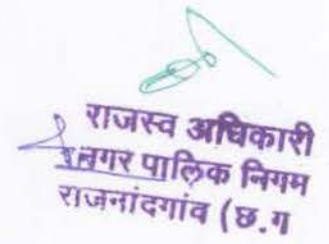 राजस्व अधिकारी
नगर पालिक निगम
राजनांदगांव (छ.ग